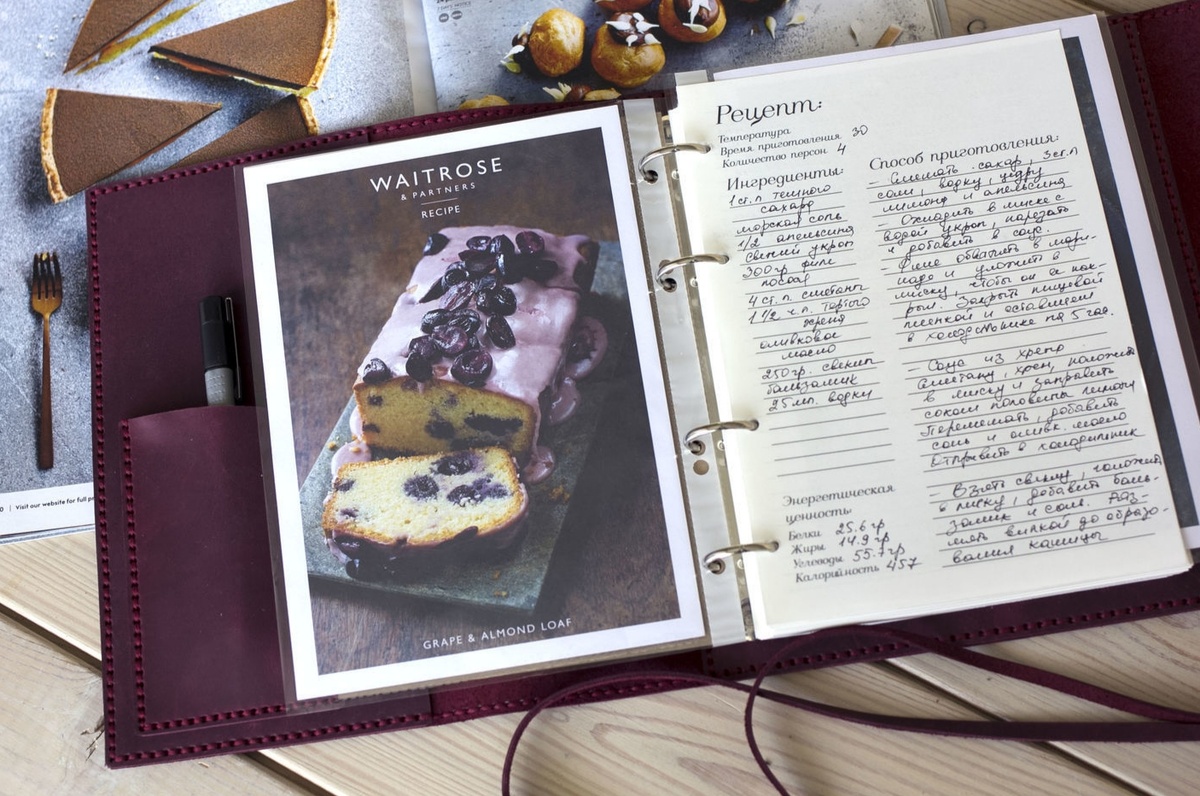 WAITROSE
& PARTNERS
RECIPE
GRAPE & ALMOND LOAF
Visit our website for full
Рецепт:
Температура
Время приготовления 30
Количество персон 4
Ингредиенты:
1 ст.л темного
сахара
морская соль
1/2 апельсина
свежий укроп
300гр филе
лосося
4 ст.л. сметаны
1 1/2 ч.л. тертого
хрена
оливковое
масло
250гр. свеклы
бальзамик
25мл. водки
Энергетическая
ценность:
Белки 25.6гр
Жиры 14.9гр
Углеводы 55.7гр
Калорийность 457
Способ приготовления:
- Смешать сахар, 3ст.л
соли, водку, цедру
лимона и апельсина
в миске с
водой укроп, нарезать
и добавить в соус.
Филе обвалять в мари-
наде и уложить в
миску, чтобы он ее пок-
рыл. Закрыть пищевой
пленкой и оставляем
в холодильнике на 5 час.
- Соус из хрена
Сметану, хрен, положить
в миску и заправить
соком половины лимона
Перемешать, добавить
соль и оливк. масло
Отправить в холодильник
- Взять свеклу, положить
в миску, добавить баль-
замик и соль. Раз-
мять вилкой до образо-
вания кашицы